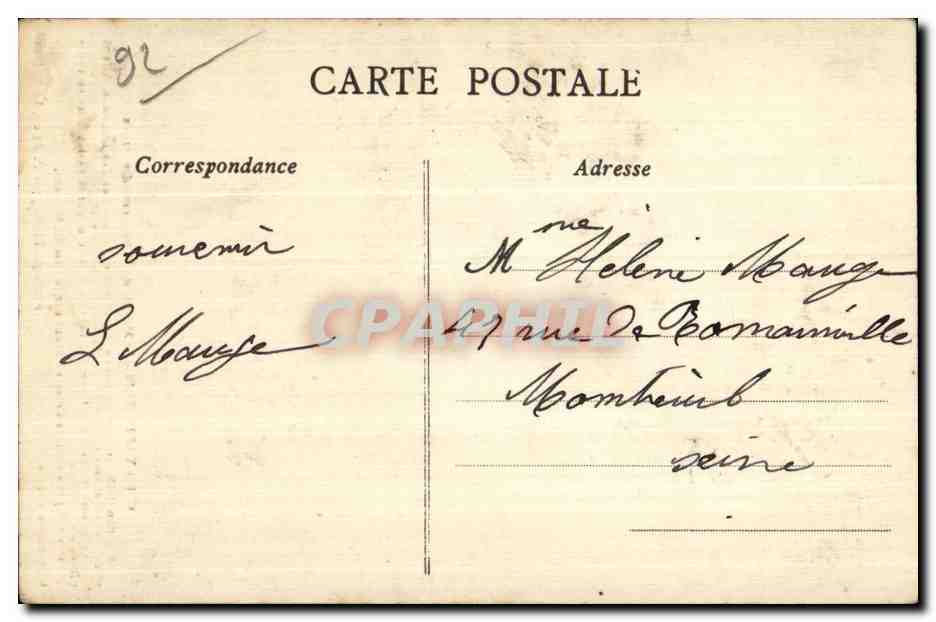 92
CARTE POSTALE
Correspondance
Adresse
souvenir
L Mauge
Mme Helène Mauge
47 rue De Romainville
Montreuil
seine
CPAPHIL